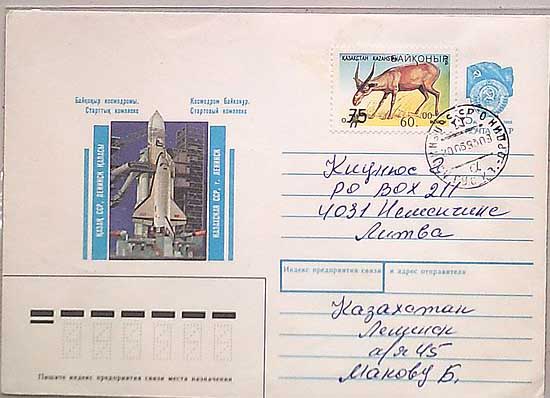 КАЗАКСТАН KAZAKSTAN
БАЙКОНЫР
75 60.00
ПОЧТА СССР
Байқоңыр космодромы. Космодром Байконур.
Старттық комплекс Стартовый комплекс
ҚАЗАҚ ССР, ЛЕНИНСК ҚАЛАСЫ
КАЗАХСКАЯ ССР, г. ЛЕНИНСК
PO BOX 211
4031 Неменчине
Литва
Индекс предприятия связи и адрес отправителя
Казахстан
Ленинск
а/я 45
Макову Б.
Пишите индекс предприятия связи места назначения